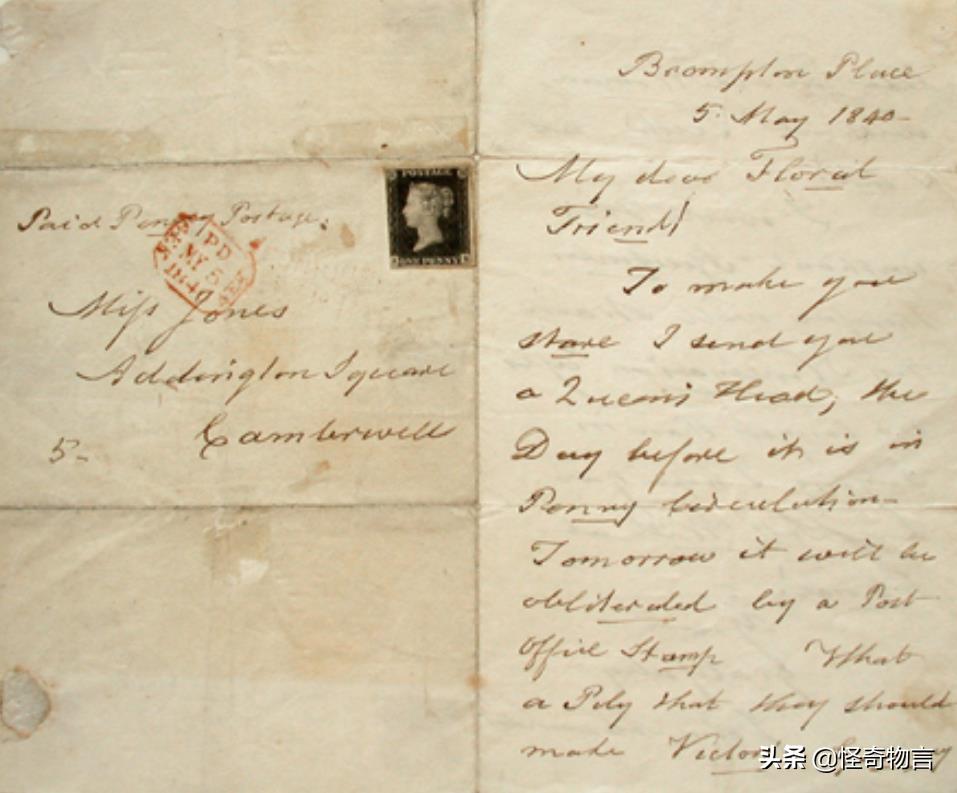 Paid Penny Postage.
POSTAGE
ONE PENNY
PD
MY 5
1840
Miss Jones
Addington Square
Camberwell
5-
Brompton Place
5 May 1840-
My dear Floral
Friend!
To make you
stare I send you
a Queen's Head, the
Day before it is in
Penny Circulation-
Tomorrow it will be
obliterated by a Post
Office Stamp What
a Pity that they should
make Victoria
头条 @怪奇物言